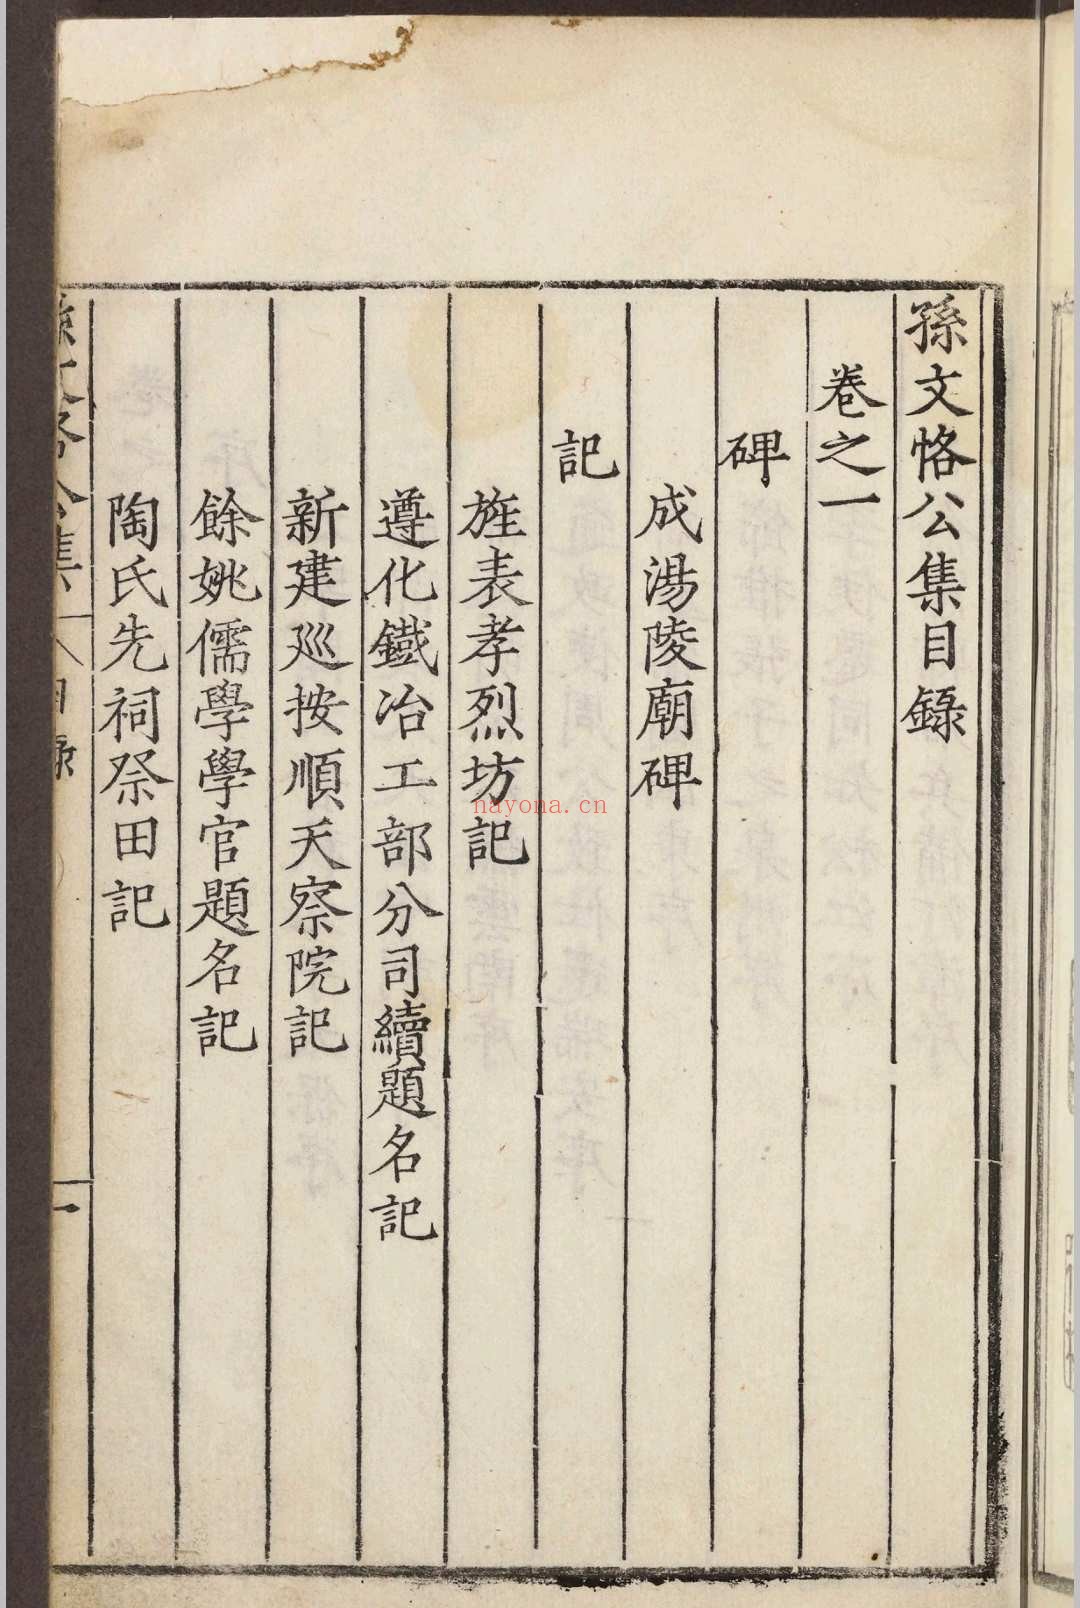 孫文恪公集目錄
卷之一
碑
成湯陵廟碑
記
旌表孝烈坊記
遵化鐵冶工部分司續題名記
新建廵按順天察院記
餘姚儒學學官題名記
陶氏先祠祭田記
一
nayona.cn